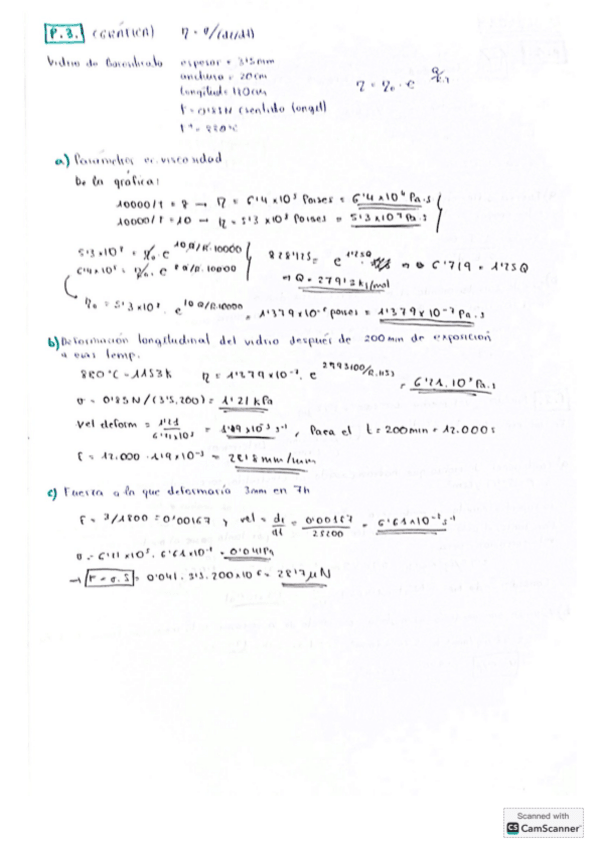 P.3. (GRÁFICA) η = σ/(dε/dt)
Vidrio de Borosilicato espesor = 3'5mm
anchura = 20cm η = η₀ · e^Q/R.T
longitud = 180cm
F = 0'85N (sentido longit)
Tª = 880ºC
a) Parámetros en viscosidad
De la gráfica:
10000/T = 8 → η = 6'4 x 10⁵ Poises = 6'4 x 10⁴ Pa.s
10000/T = 10 → η = 5'3 x 10⁸ Poises = 5'3 x 10⁷ Pa.s
5'3 x 10⁸ = η₀ . e^10Q/R.10000
6'4 x 10⁵ = η₀ . e^8Q/R.10000
828'125 = e → 6'719 =
→ Q = 279'3 kJ/mol
η₀ = 5'3 x 10⁸ . e^10Q/R.10000 = 1'379 x 10⁻⁶ poises = 1'379 x 10⁻⁷ Pa.s
b) Deformación longitudinal del vidrio después de 200 min de exposición
a esas temp.
880ºC = 1153K η = 1'379 x 10⁻⁷ . e^2793100/R.1153 = Pa.s
σ = 0'85N/(3'5.200) = 1'21 kPa
Vel deform = = s⁻¹, Para el t = 200min = 12.000s
ε = 12.000 . x 10⁻³ = mm/mm
c) Fuerza a la que deformaría 3mm en 7h
ε = 3/1800 = 0'00167 y vel = dε/dt = 0'00167/25200 = 6'61 x 10⁻⁸ s⁻¹
σ = . 6'61 x 10⁻⁸ = 0'041Pa
→ F = σ.S = 0'041 . 3'5.200 x 10⁻⁶ = 28'7 μN
Scanned with
CS CamScanner